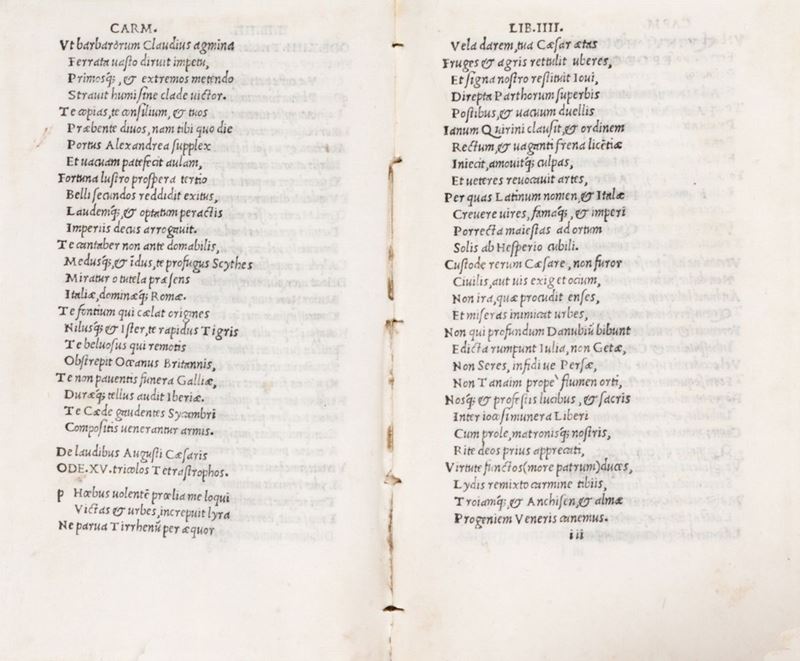 CARM.
Vt barbarorum Claudius agmina
Ferrata uasto diruit impetu,
Primosq;, & extremos metendo
Strauit humi sine clade uictor.
Te copias, te consilium, & tuos
Præbente diuos, nam tibi quo die
Portus Alexandrea supplex
Et uacuam patefecit aulam,
Fortuna lustro prospera tertio
Belli secundos reddidit exitus,
Laudemq;, & optatum peractis
Imperiis decus arrogauit.
Te cantaber non ante domabilis,
Medusq;, & īdus, te profugus Scythes
Miratur o tutela præsens
Italiæ, dominæq; Romæ.
Te fontium qui cælat origines
Nilusq; & Ister, te rapidus Tigris
Te beluosus qui remotis
Obstrepit Oceanus Britannis,
Te non pauentis funera Galliæ,
Duræq; tellus audit Iberiæ.
Te Cæde gaudentes Sycambri
Compositis uenerantur armis.
De laudibus Augusti Cæsaris
ODE.XV.tricolos Tetrastrophos.
p Hœbus uolentē prœlia me loqui
Victas & urbes, increpuit lyra
Ne parua Tirrhenū per æquor
LIB.IIII.
Vela darem, tua Cæsar ætas
Fruges & agris rettulit uberes,
Et signa nostro restituit Ioui,
Direpta Parthorum superbis
Postibus, & uacuum duellis
Ianum Quirini clausit, & ordinem
Rectum, & uaganti frena licētiæ
Iniecit, amouitq; culpas,
Et ueteres reuocauit artes,
Per quas Latinum nomen, & Italæ
Creuere uires, famaq;, & imperi
Porrecta maiestas ad ortum
Solis ab Hesperio cubili.
Custode rerum Cæsare, non furor
Ciuilis, aut uis exiget ocium,
Non ira, quæ procudit enses,
Et miseras inimicat urbes,
Non qui profundum Danubiū bibunt
Edicta rumpunt Iulia, non Getæ,
Non Seres, infidi ue Persæ,
Non Tanaim prope` flumen orti,
Nosq; & profestis lucibus, & sacris
Inter iocosi munera Liberi
Cum prole, matronisq; nostris,
Rite deos prius apprecati,
Virtute functos(more patrum)duces,
Lydis remixto carmine tibiis,
Troiamq;, & Anchisen, & almæ
Progeniem Veneris canemus.
iii